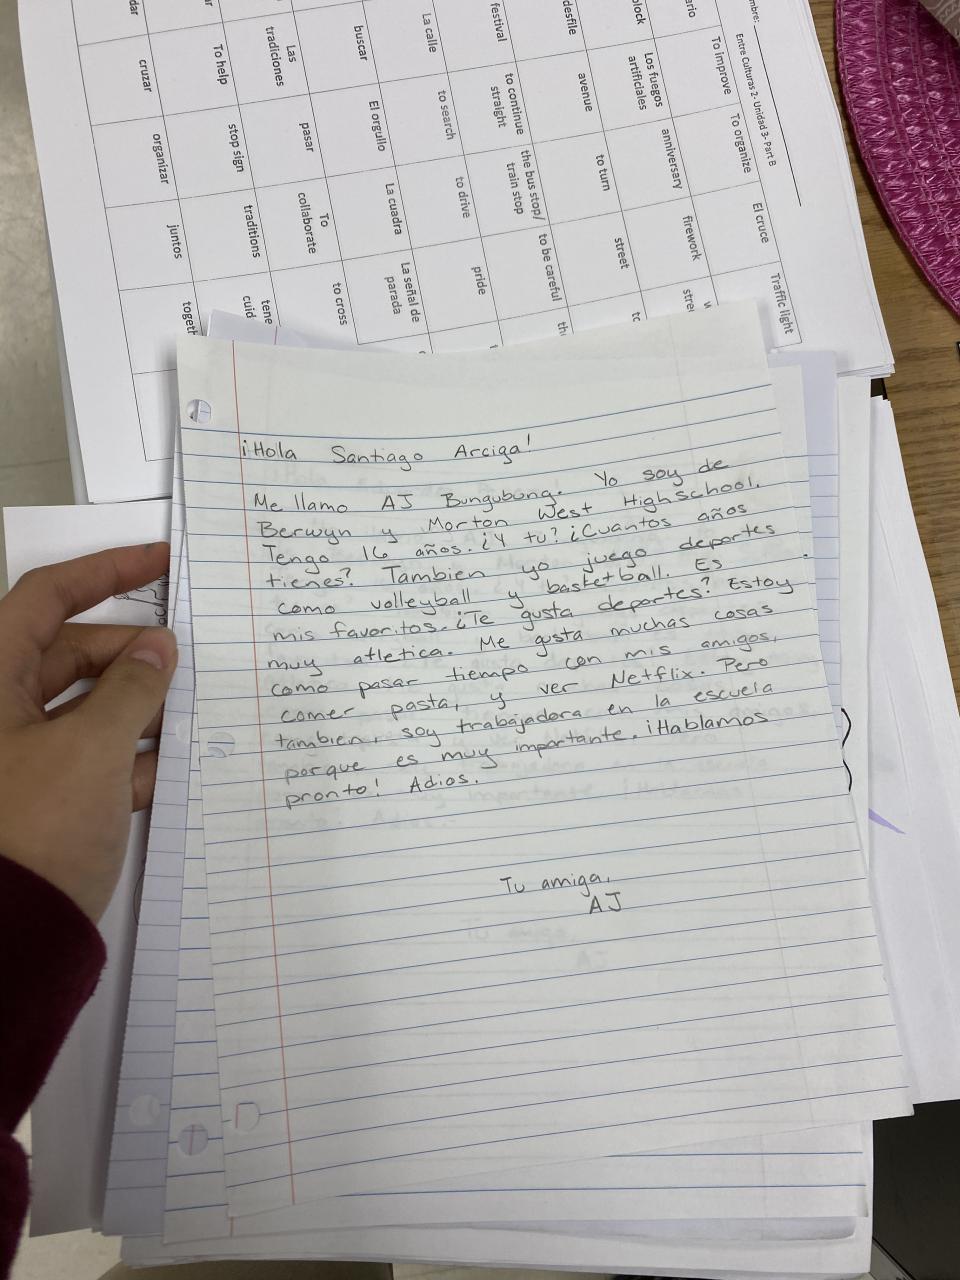 Entre Culturas 2- Unidad 3- Part B
To improve
To organize
El cruce
Traffic light
Los fuegos artificiales
anniversary
firework
desfile
avenue
to turn
street
festival
to continue straight
the bus stop/ train stop
to be careful
La calle
to search
to drive
pride
buscar
El orgullo
La cuadra
La señal de parada
Las tradiciones
pasar
To collaborate
to cross
To help
stop sign
traditions
cruzar
organizar
juntos
¡Hola Santiago Arciga!
Me llamo AJ Bungubung. Yo soy de
Berwyn y Morton West Highschool.
Tengo 16 años. ¿Y tu? ¿Cuantos años
tienes? Tambien yo juego deportes
como volleyball y basketball. Es
mis favoritos. ¿Te gusta deportes? Estoy
muy atletica. Me gusta muchas cosas
como pasar tiempo con mis amigos,
comer pasta, y ver Netflix. Pero
tambien soy trabajadora en la escuela
porque es muy importante. ¡Hablamos
pronto! Adios.
Tu amiga,
AJ